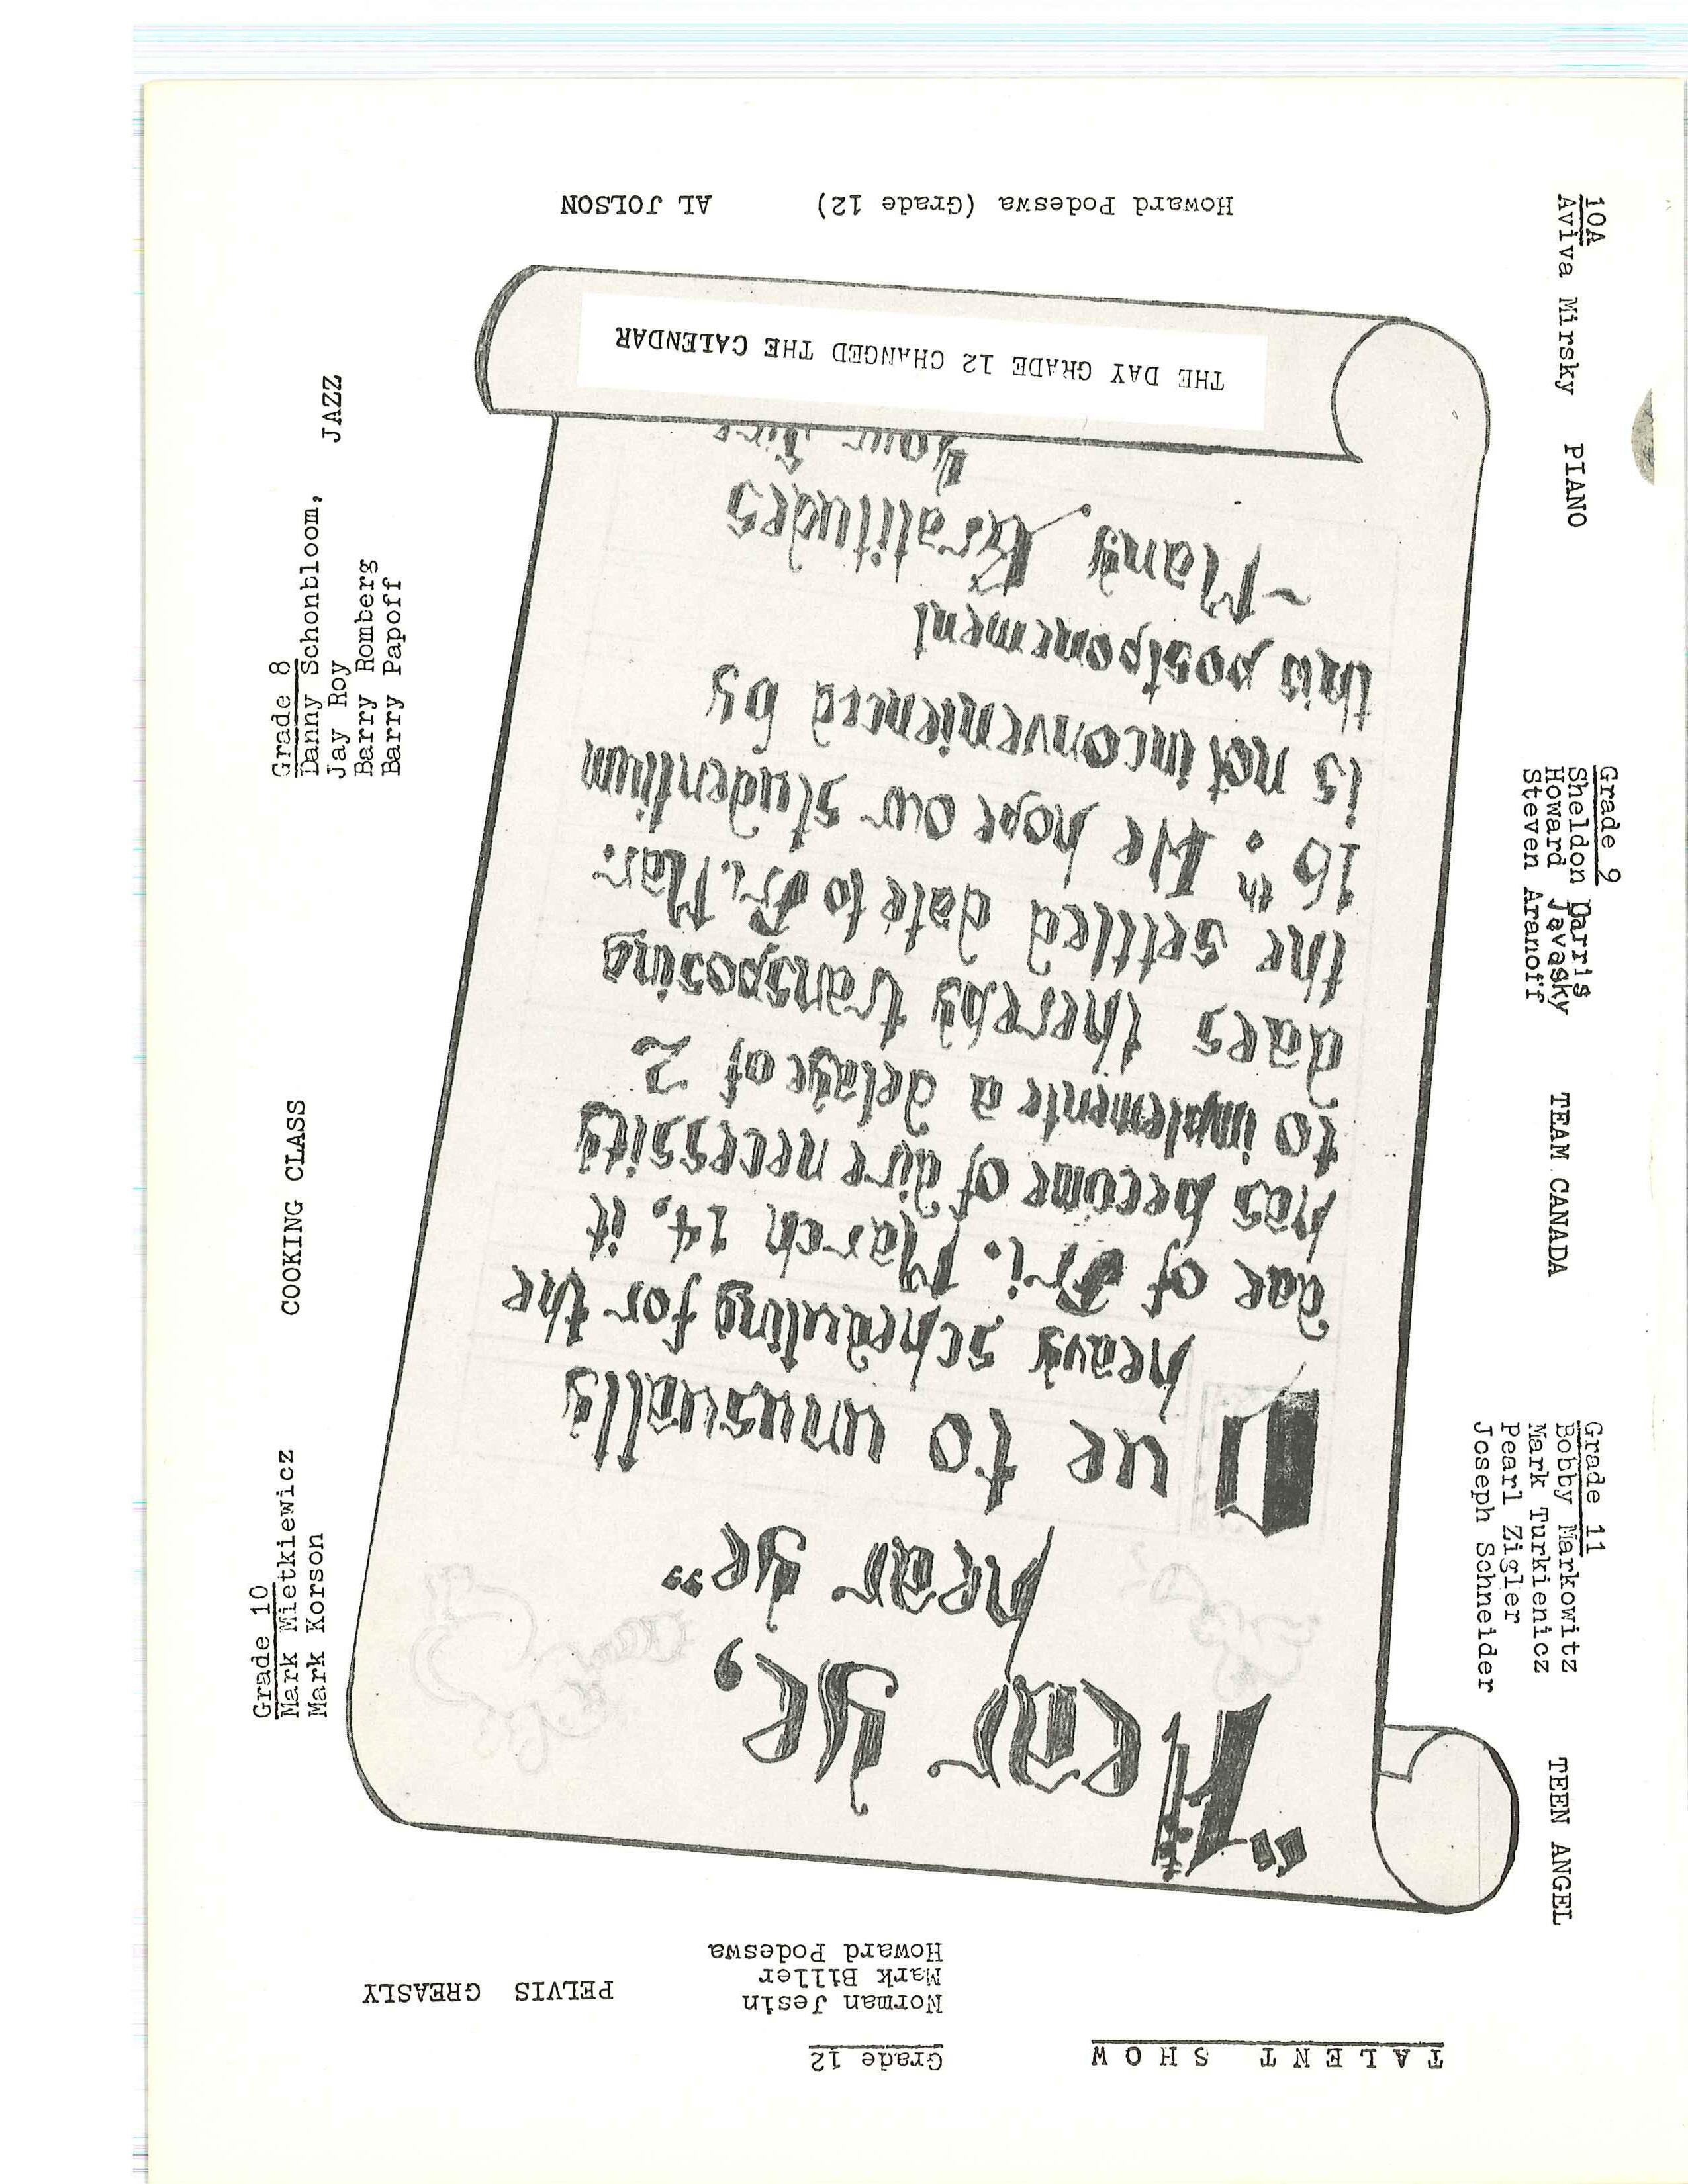 TALENT SHOW
Grade 12
Norman Jesin
Mark Biller
Howard Podeswa
PELVIS GREASLY
"Hear ye,
hear ye"
Due to unusually
heavy scheduling for the
dae of Fri. March 14, it
has become of dire necessity
to implemente a delaye of 2
daes thereby transposing
the settled date to Fri. Mar.
16th. We hope our studentium
is not inconvenienced by
this postponement
~Many Gratitudes
Your
THE DAY GRADE 12 CHANGED THE CALENDAR
Howard Podeswa (Grade 12) AL JOLSON
Grade 10
Mark Mietkiewicz
Mark Korson
COOKING CLASS
Grade 8
Danny Schonbloom,
Jay Roy
Barry Romberg
Barry Papoff
JAZZ
10A
Aviva Mirsky PIANO
Grade 9
Sheldon Parris
Howard Javasky
Steven Aranoff
TEAM CANADA
Grade 11
Bobby Markowitz
Mark Turkienicz
Pearl Zigler
Joseph Schneider
TEEN ANGEL